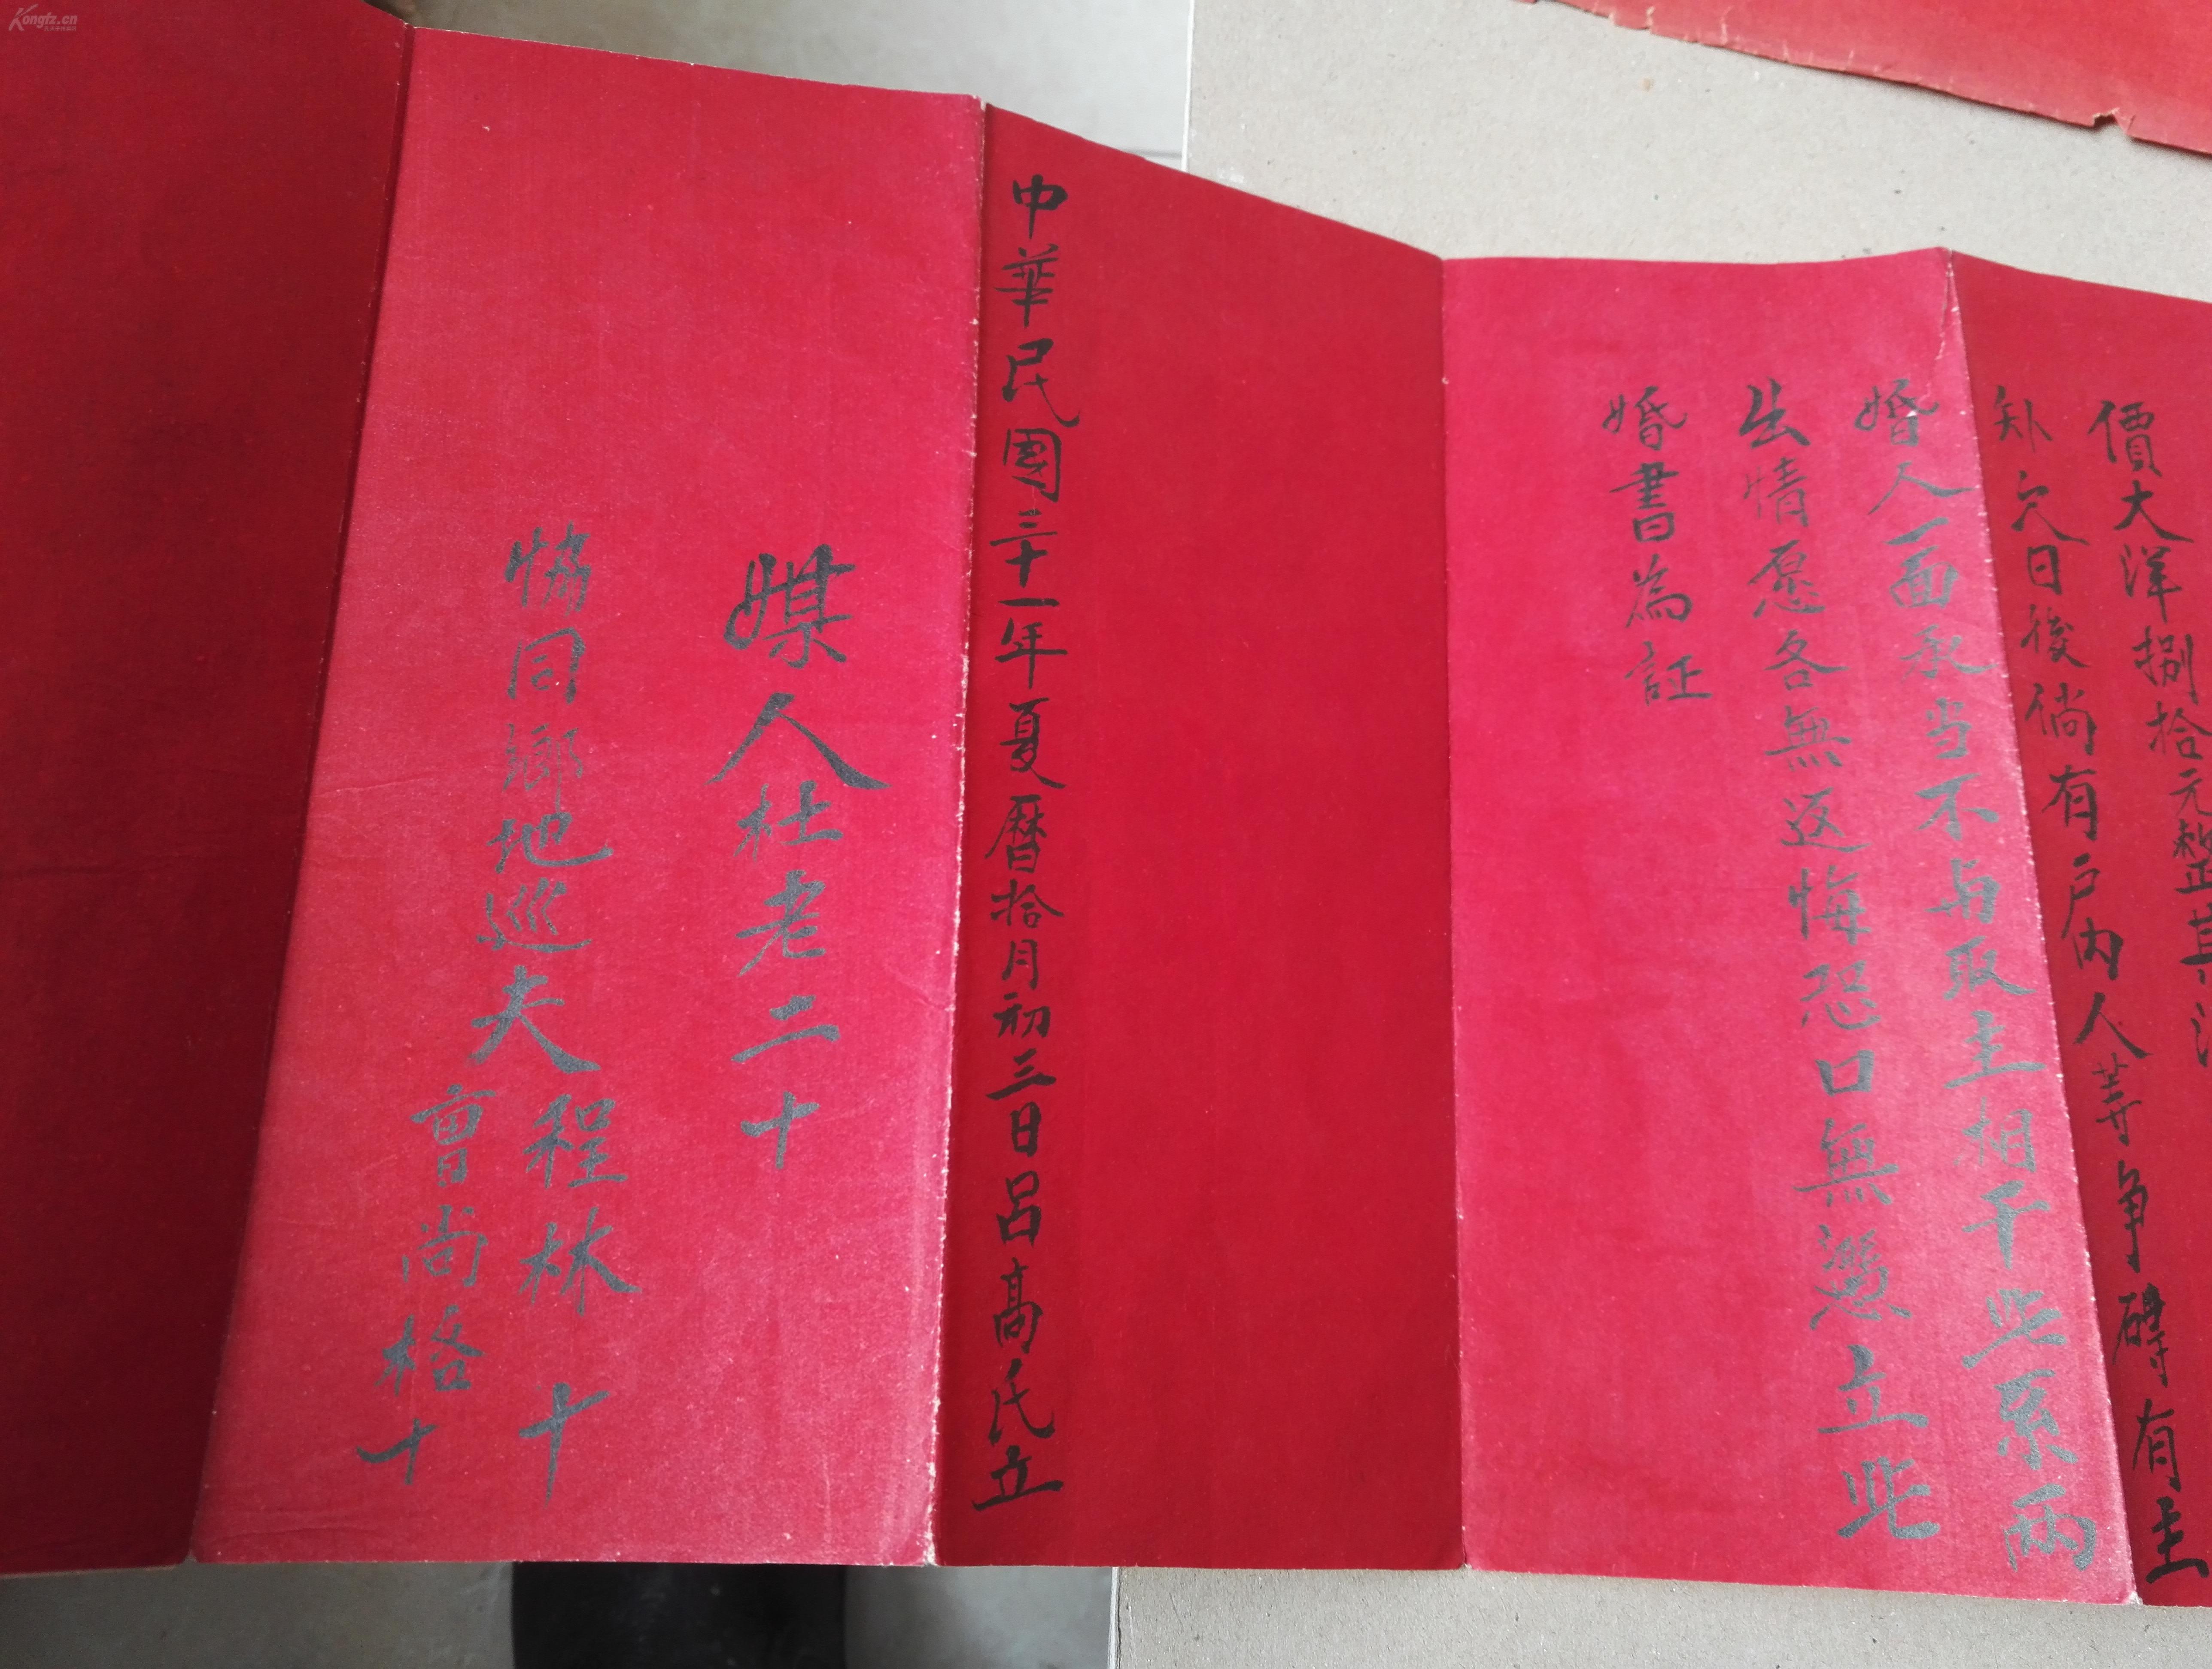 價大洋捌拾元整其洋
欠日後倘有户内人等争礙有主
婚人一面承当不与取主相干此系兩
出情愿各無返悔恐口無憑立此
婚書為証
中華民國三十一年夏曆拾月初三日呂高氏立
媒人杜老二十
協同鄉地巡夫程林十
曹尚格十
Kongfz.cn